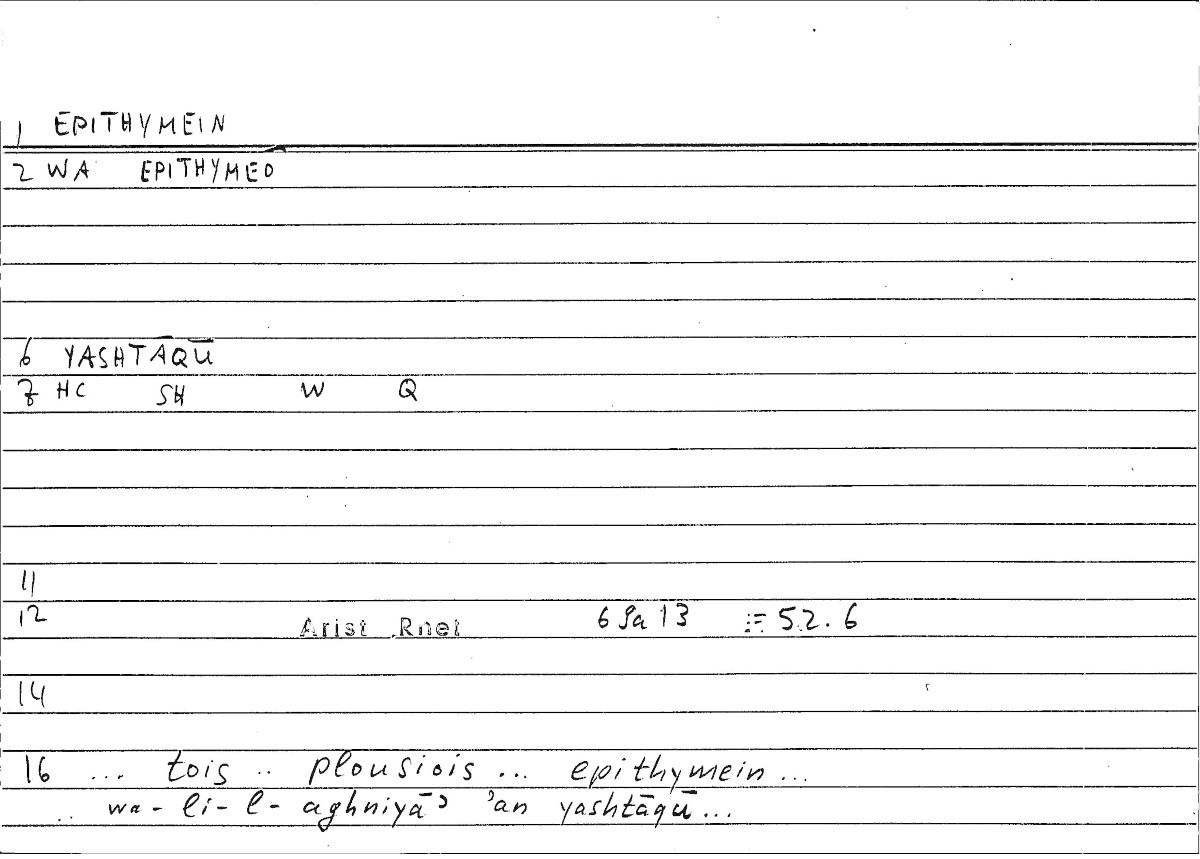 1 EPITHYMEIN
2 WA EPITHYMEŌ
6 YASHTĀQŪ
7 HC SH W Q
11
12 Arist Rhet 69a13 = 52.6
14
16 ... tois .. plousiois ... epithymein ...
.. wa-li-l-aghniyāʾ ʾan yashtāqū ...